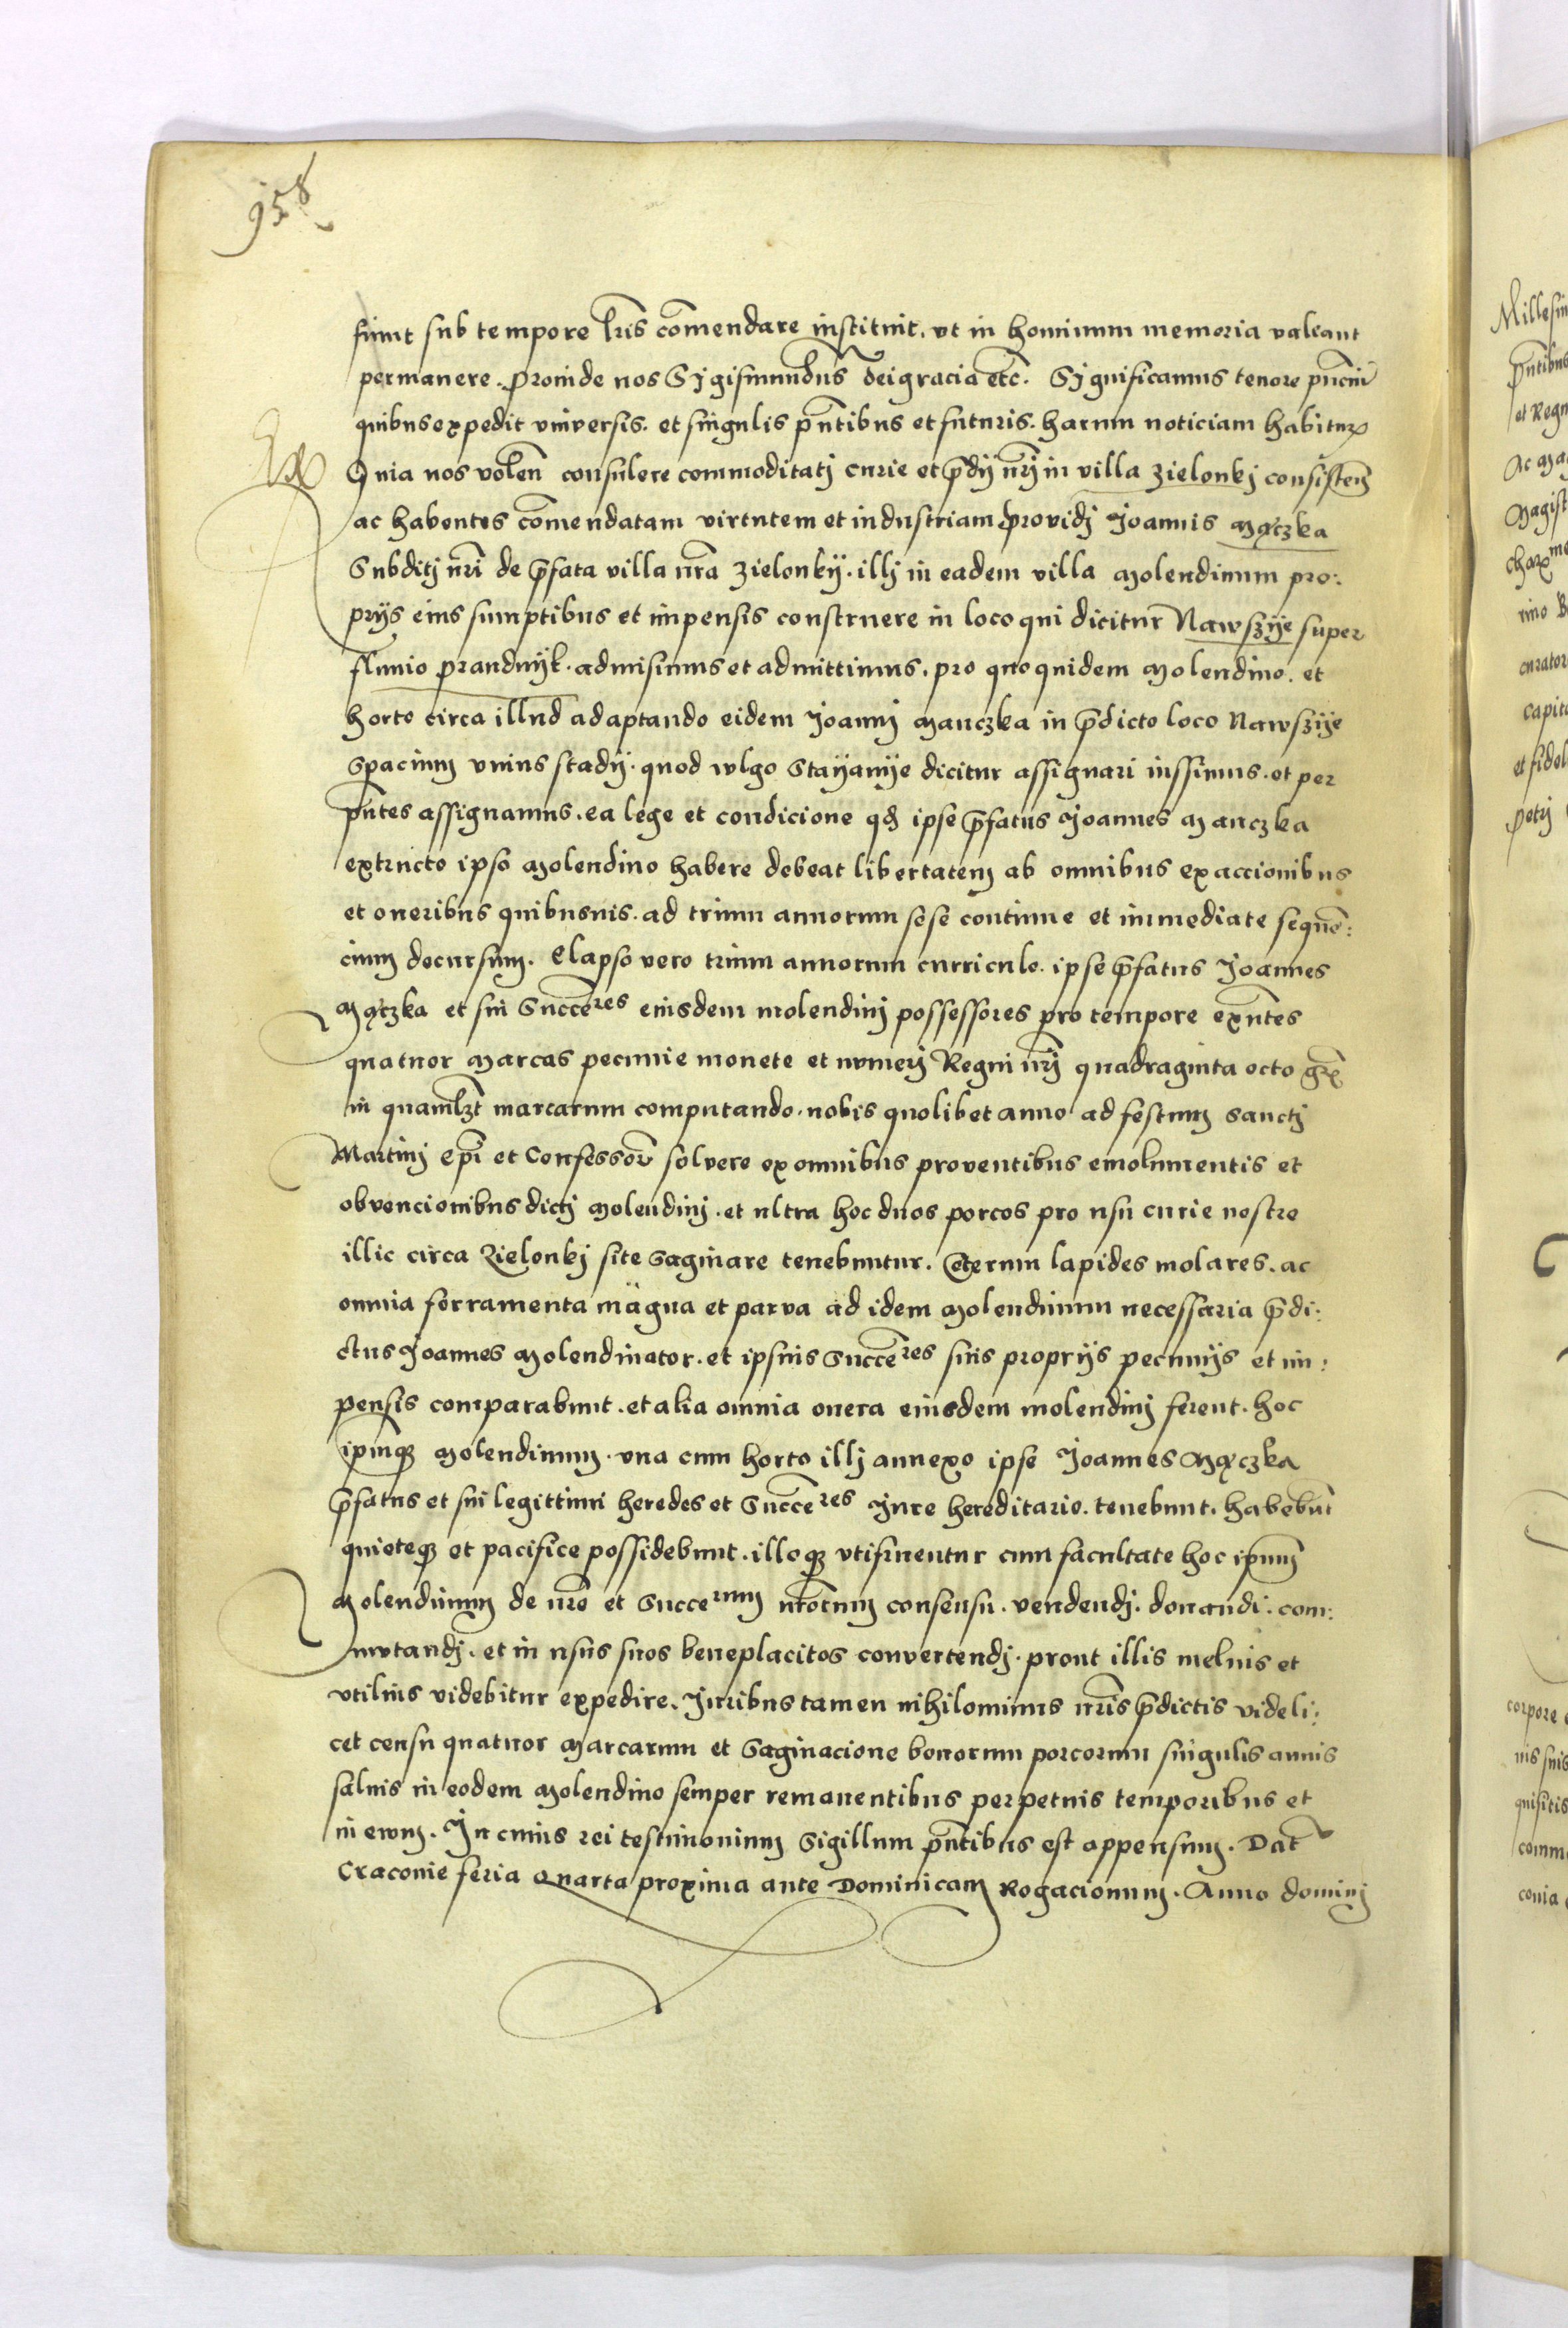 958
fiunt sub tempore lr̃is com̃endare instituit. vt in hominum memoria valeant
permanere. Proinde nos Sigismundus deigracia etc̃. Significamus tenore pñciũ
quibus expedit vniversis. et singulis pñtibus et futuris. harum noticiam habitur
Quia nos volen̄ consulere commoditatj curie et p̃dij nr̃j in villa Zielonkj consisteñ
ac habentes com̃endatam virtutem et industriam providj Joannis Mączka
Subditj nr̃i de p̃fata villa nr̃a Zielonkij. illj in eadem villa Molendinum pro:
prijs eius sumptibus et impensis construere in loco qui dicitur Nawszije super
fluuio Prandnijk. admisimus et admittimus. pro quo quidem Molendino. et
horto circa illud adaptando eidem Joannj Manczka in p̃dicto loco Nawszije
Spacium vnius stadij. quod wlgo Stayanije dicitur assignari iussimus. et per
pñtes assignamus. ea lege et condicione qđ ipse p̃fatus Joannes Manczka
extructo ipso Molendino habere debeat libertatem ab omnibus exaccionibus
et oneribus quibusuis. ad trium annorum sese continue et immediate sequẽ:
cium decursum. Elapso vero trium annorum curriculo. ipse p̃fatus Joannes
Mączka et sui Succẽres eiusdem molendinj possessores pro tempore exñtes
quatuor Marcas pecunie monete et numerj Regni nr̃j quadraginta octo gr̃
in quamlzt marcarum computando. nobis quolibet anno ad festum Sanctj
Martinj ep̃i et Confessor̃ solvere ex omnibus proventibus emolumentis et
obvencionibus dictj Molendinj. et ultra hoc duos porcos pro usu curie nostre
illic circa Zielonkj site Saginare tenebuntur. Ceterum lapides molares. ac
omnia ferramenta magna et parva ad idem Molendinum necessaria p̃di:
ctus Joannes Molendinator. et ipsius Succẽres suis proprijs pecunijs et im:
pensis comparabunt. et alia omnia onera eiusdem molendinj ferent. hoc
ip̃umq3 Molendinum. vna cum horto illj annexo ipse Joannes Mączka
p̃fatus et sui legittimi heredes et Succẽres Jure hereditario. tenebunt. habebunt
quieteq3 et pacifice possidebunt. illoq3 vtifruentur cum facultate hoc ip̃um
Molendinum de nr̃o et Succerum nr̃orum consensu. vendendj. donandi. com:
mutandj. et in usus suos beneplacitos convertendj. prout illis melius et
vtilius videbitur expedire. Juribus tamen nihilominus nr̃is p̃dictis videli:
cet censu quatuor Marcarum et Saginacione bonorum porcorum singulis annis
salvis in eodem Molendino semper remanentibus perpetuis temporibus et
in ewm. In cuius rei testimonium Sigillum pñtibus est appensum. Dat̃
Cracovie feria Quarta proxima ante Dominicam Rogacionum. Anno dominj